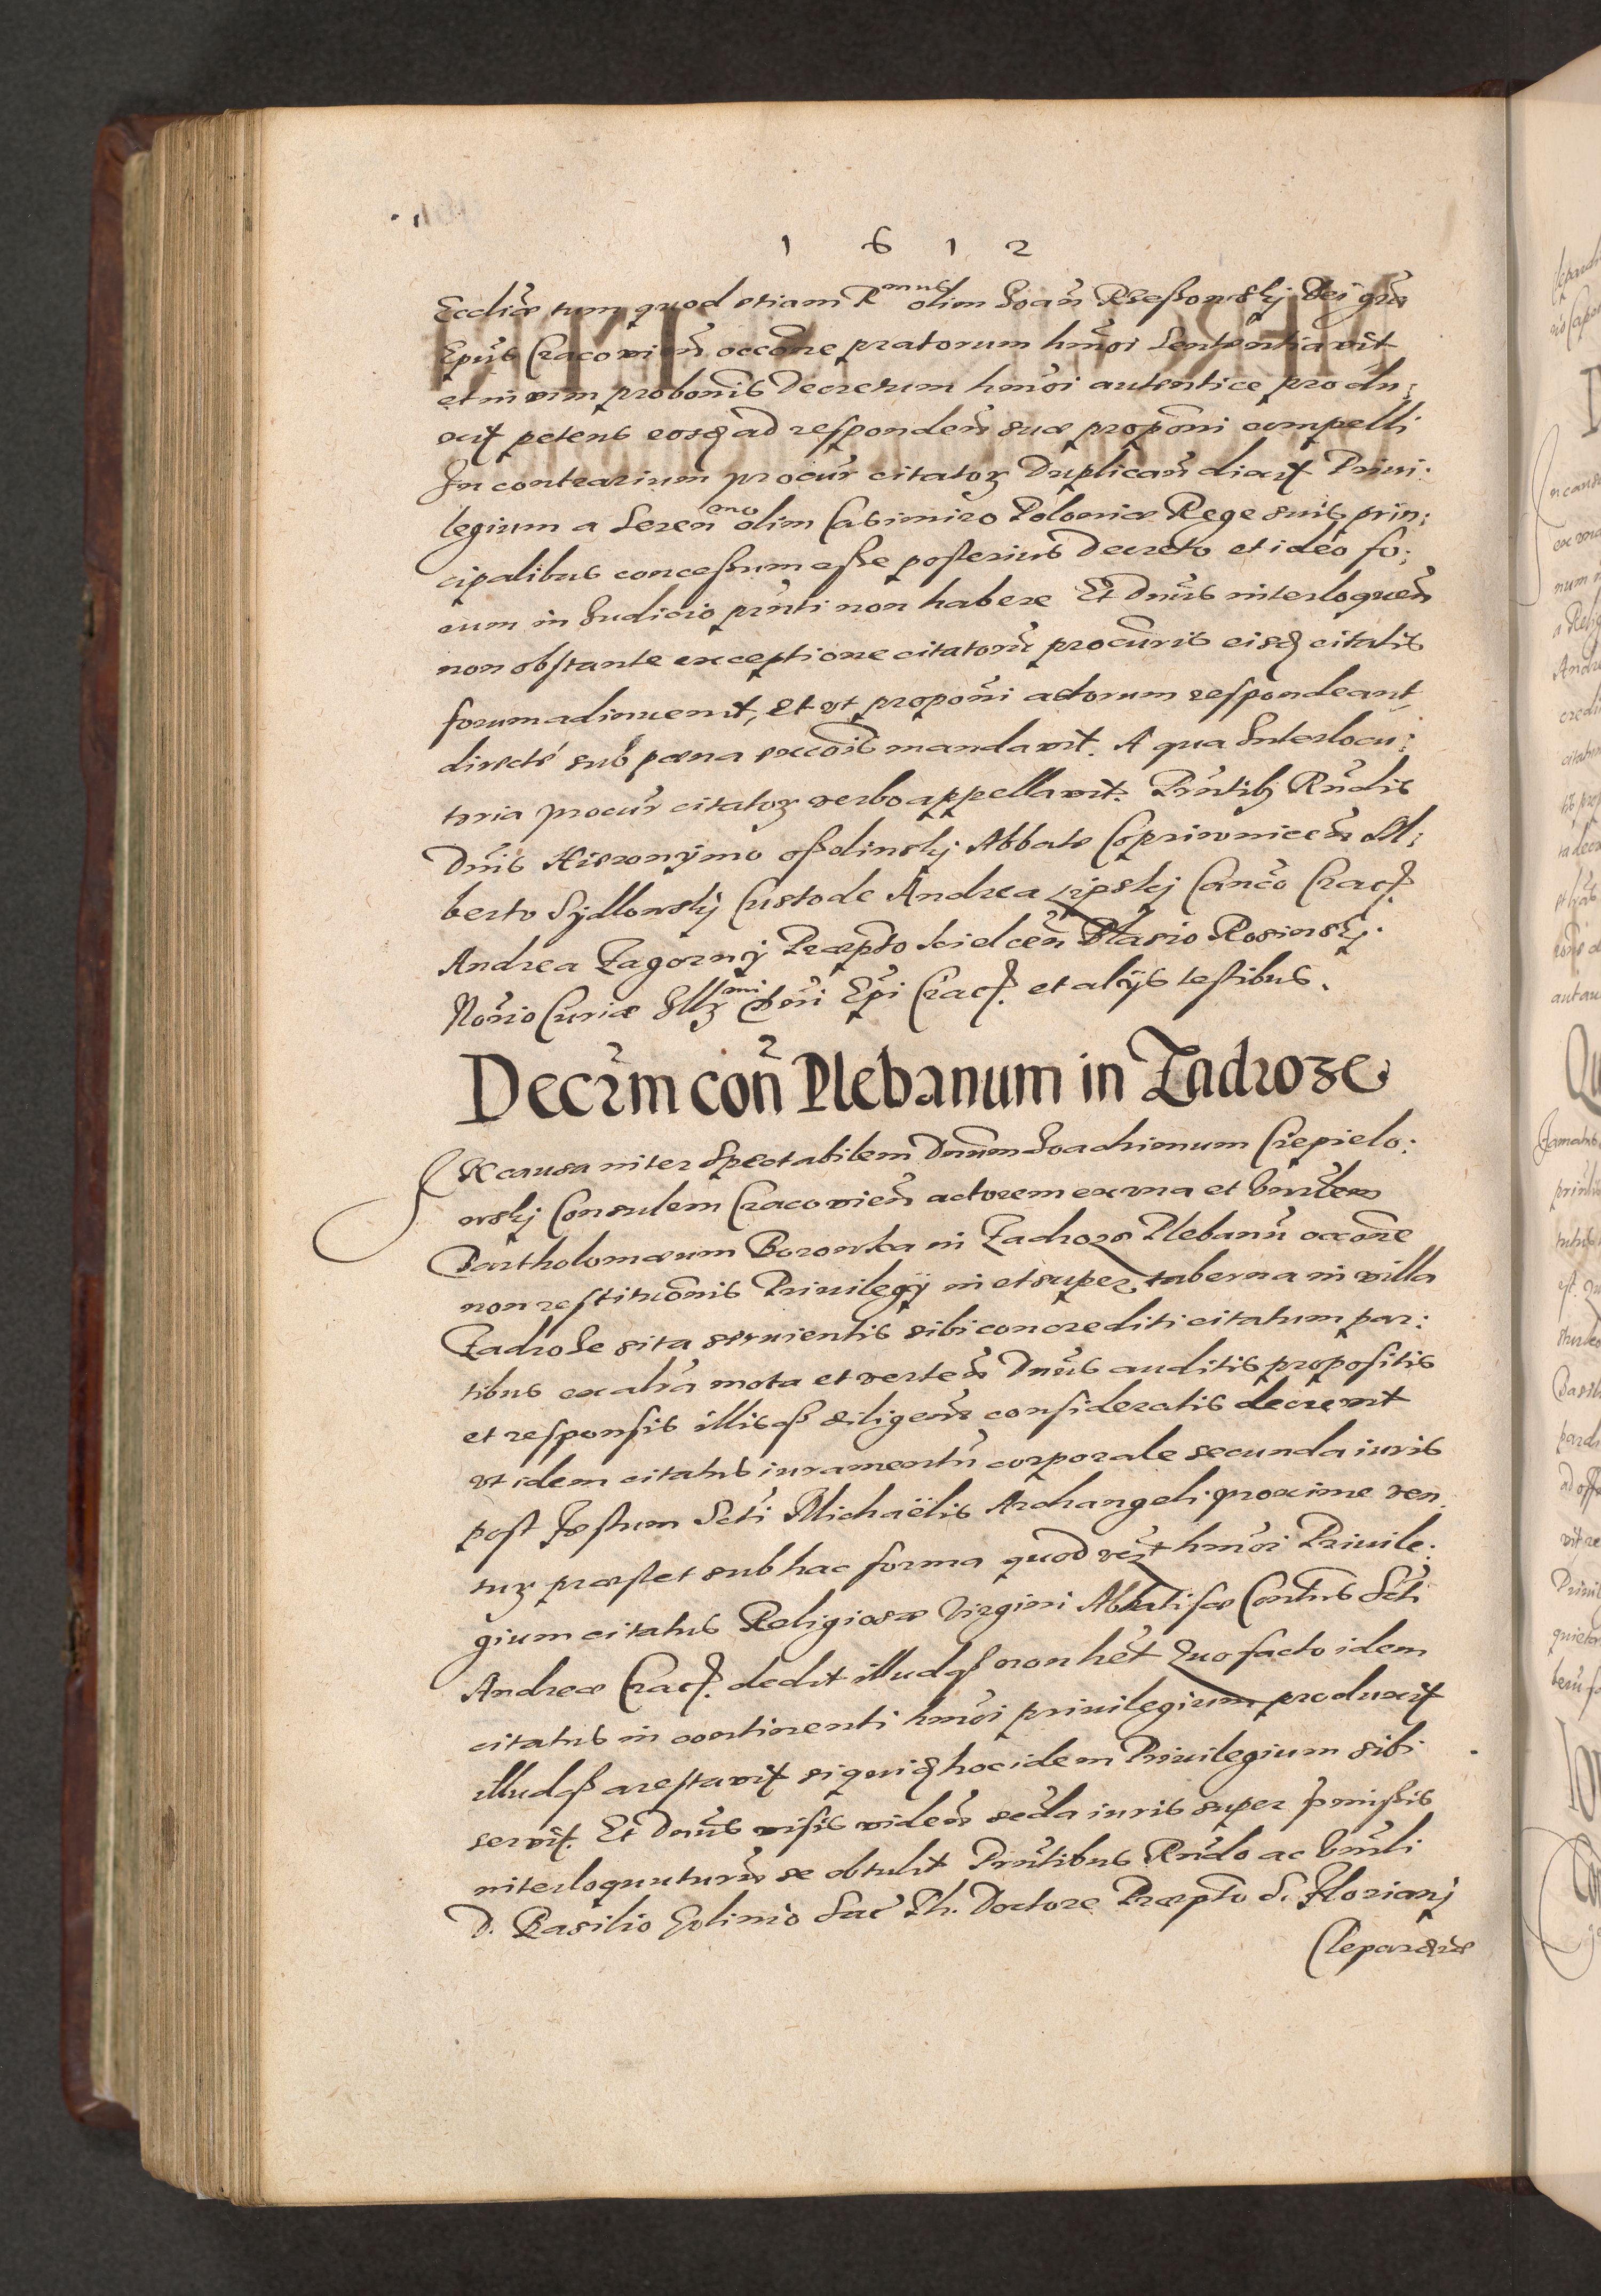 1612
Eccliæ tum quod etiam Rmus olim Joan̄ Rzeßowskj Dei gr̄a
Ep̄us Cracovien̄ occōne pratorum hmōi Sententiavit
et in vim probōnis Decretum hmōi autentice produ:
cit petens eosd ad responden̄ suæ propōni compelli
In contrarium procur̄ citatoꝝ Duplican̄ dicit Privi:
legium a Serenmo olim Casimiro Poloniæ Rege suis prin:
cipalibus conceßum eße posterius Decreto et ideo fo:
rum in Judicio pn̄ti non habere Et Dn̄us interloquen̄
non obstante exceptione citatorū procur̄is eisd citatis
forum adinvenit, et ut propōni actorum respondeant
directé sub pæna exccōis mandavit. A qua Interlocu:
toria procur̄ citatoꝝ verbo appellavit. Pn̄tibꝫ Rn̄dis
Dn̄is Hieronÿmo oßolinskj Abbate Coprivnicen̄ Al:
berto Sÿdlowskÿ Custode Andrea Lipskj Canco Crac.
Andrea Zagornÿ Præpto Kielcen̄ Blasio Rosinskj.
Norio Curiæ Illmi Dn̄i Ep̄i Crac. et alÿs testibus.
Decr̄m con̄ Plebanum in Zadroze
IN causa inter Spectabilem Dn̄um Joachimum Ciepielo:
wskj Consulem Cracovien̄ actorem ex una et Vn̄rlem
Bartholomæum Boronka in Zadroze Plebanū occōne
non restitucōnis Privilegÿ in et super taberna in villa
Zadroße sita servientis sibi concrediti citatum par:
tibus ex altā mota et verten̄ Dn̄us auditis propositis
et responsis illisqꝫ diligen̄r consideratis decrevit
ut idem citatus iuramentū corporale secunda iuris
post Festum Scti Michaëlis Archangeli proxime ven
tuꝝ præstet sub hac forma quod vꝫt hmōi Privile:
gium citatus Religiosæ Virgini Abbatißæ Contus Scti
Andreæ Crac. dedit illudqꝫ non hēt Quo facto idem
citatus in continenti hmōi privilegium produxit
illudqꝫ arestavit siquid hoc idem Privilegium sibi
servit. Et Dn̄us visis viden̄ secda iuris super p̄mißis
interloquuturū se obtulit Pn̄tibus Rn̄do ac Vn̄rli
D. Basilio Golinio Sac Th. Doctore Præpto S. Florianj
Clepardiæ